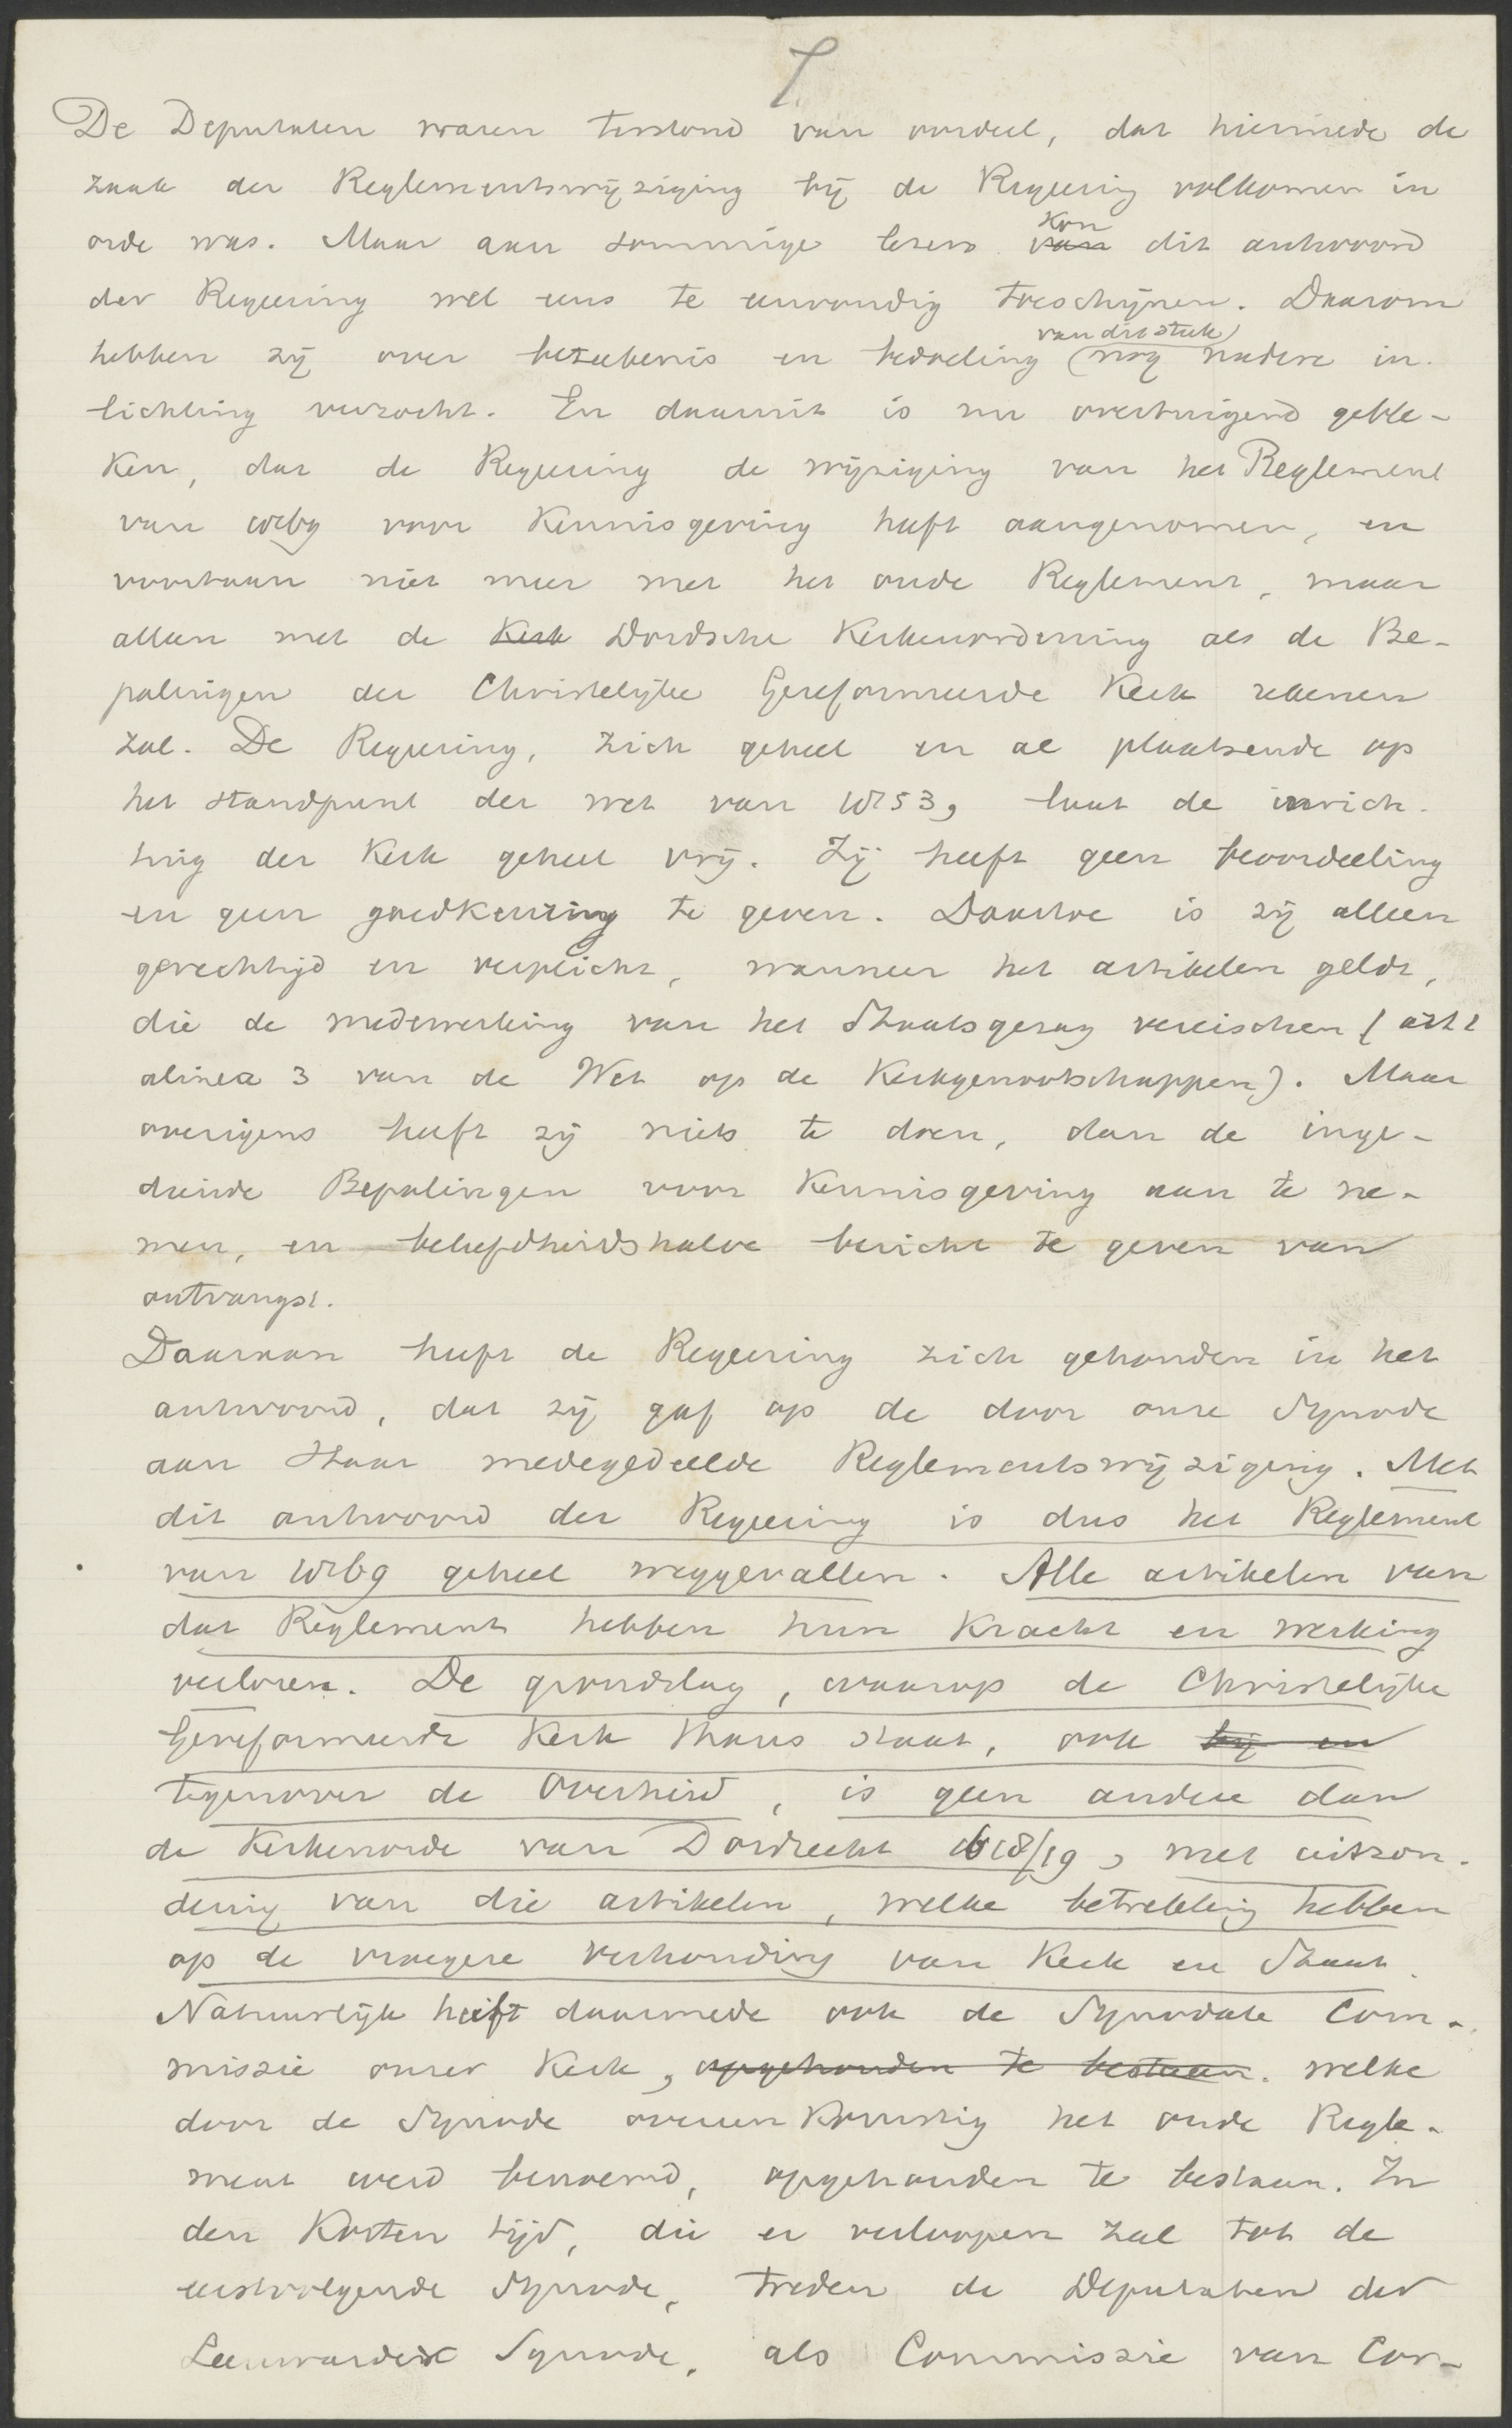 De Deputaten waren terstond van oordeel, dat hiermede de
zaak der Reglementswijziging bij de Regeering volkomen in
kon
orde was. Maar aan sommige lezers van dit antwoord
der Regeering wel eens te eenvoudig toeschijnen. Daarom
van dit stuk
hebben zij over beteekenis en bedoeling (nog nadere in-
lichting verzocht. En daaruit is nu overtuigend geble-
ken, dat de Regeering de wijziging van het Reglement
van 1869 voor kennisgeving heeft aangenomen, en
voortaan niet meer met het oude Reglement, maar
alleen met de Kerk Dordsche Kerkenordening als de Be-
palingen der Christelijke Gereformeerde Kerk rekenen
zal. De Regeering, zich geheel en al plaatsende op
het standpunt der wet van 1853, laat de inrich-
ting der Kerk geheel vrij. Zij heeft geen beoordeeling
en geen goedkeuring te geven. Daartoe is zij alleen
gerechtigd en verplicht, wanneer het artikelen geldt,
die de medewerking van het Staatsgezag vereischen (art 1
alinea 3 van de Wet op de Kerkgenootschappen). Maar
overigens heeft zij niets te doen, dan de inge-
diende Bepalingen voor kennisgeving aan te ne-
men, en beleefdheidshalve bericht te geven van
ontvangst.
Daaraan heeft de Regeering zich gehouden in het
antwoord, dat zij gaf op de door onze Synode
aan Haar medegedeelde Reglementswijziging. Met
dit antwoord der Regeering is dus het Reglement
van 1869 geheel weggevallen. Alle artikelen van
dat Reglement hebben hun kracht en werking
verloren. De grondslag, waarop de Christelijke
Gereformeerde Kerk thans staat, ook bij en
tegenover de Overheid, is geen andere dan
de Kerkenorde van Dordrecht 1618/19, met uitzon-
dering van die artikelen, welke betrekking hebben
op de vroegere verhouding van Kerk en Staat.
Natuurlijk heeft daarmede ook de Synodale Com-
missie onzer Kerk, opgehouden te bestaan. welke
door de Synode overeenkomstig het oude Regle-
ment werd benoemd, opgehouden te bestaan. In
den korten tijd, die er verloopen zal tot de
eerstvolgende Synode, treden de Deputaten der
Leeuwarder Synode, als Commissie van Cor-